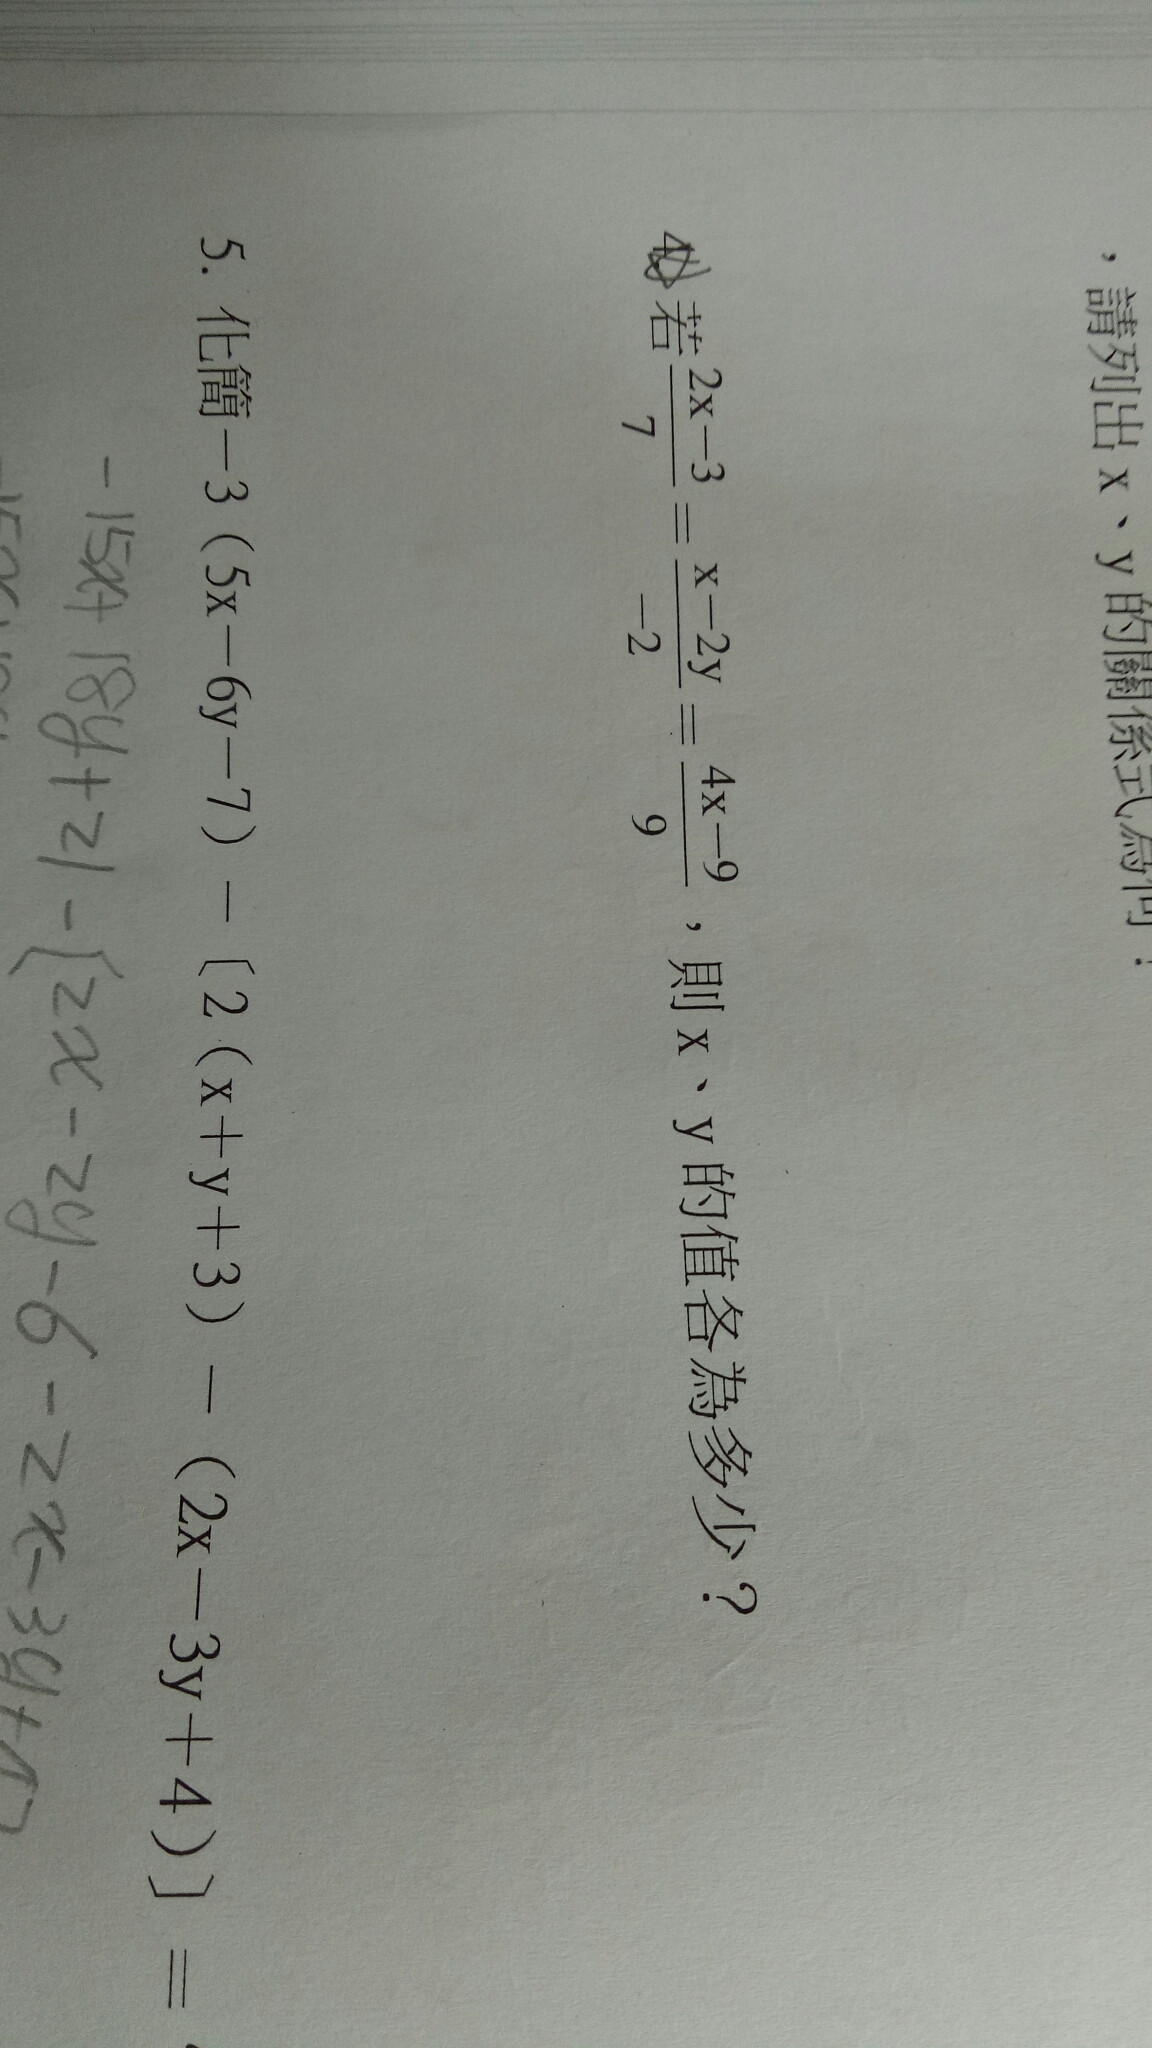 ，請列出 x、y 的關係式為何？
4. 若 2x－3/7 = x－2y/－2 = 4x－9/9 ，則 x、y 的值各為多少？
5. 化簡－3（5x－6y－7）－〔2（x＋y＋3）－（2x－3y＋4）〕＝
-15x+18y+21-[2x-2y-6-2x-3y+